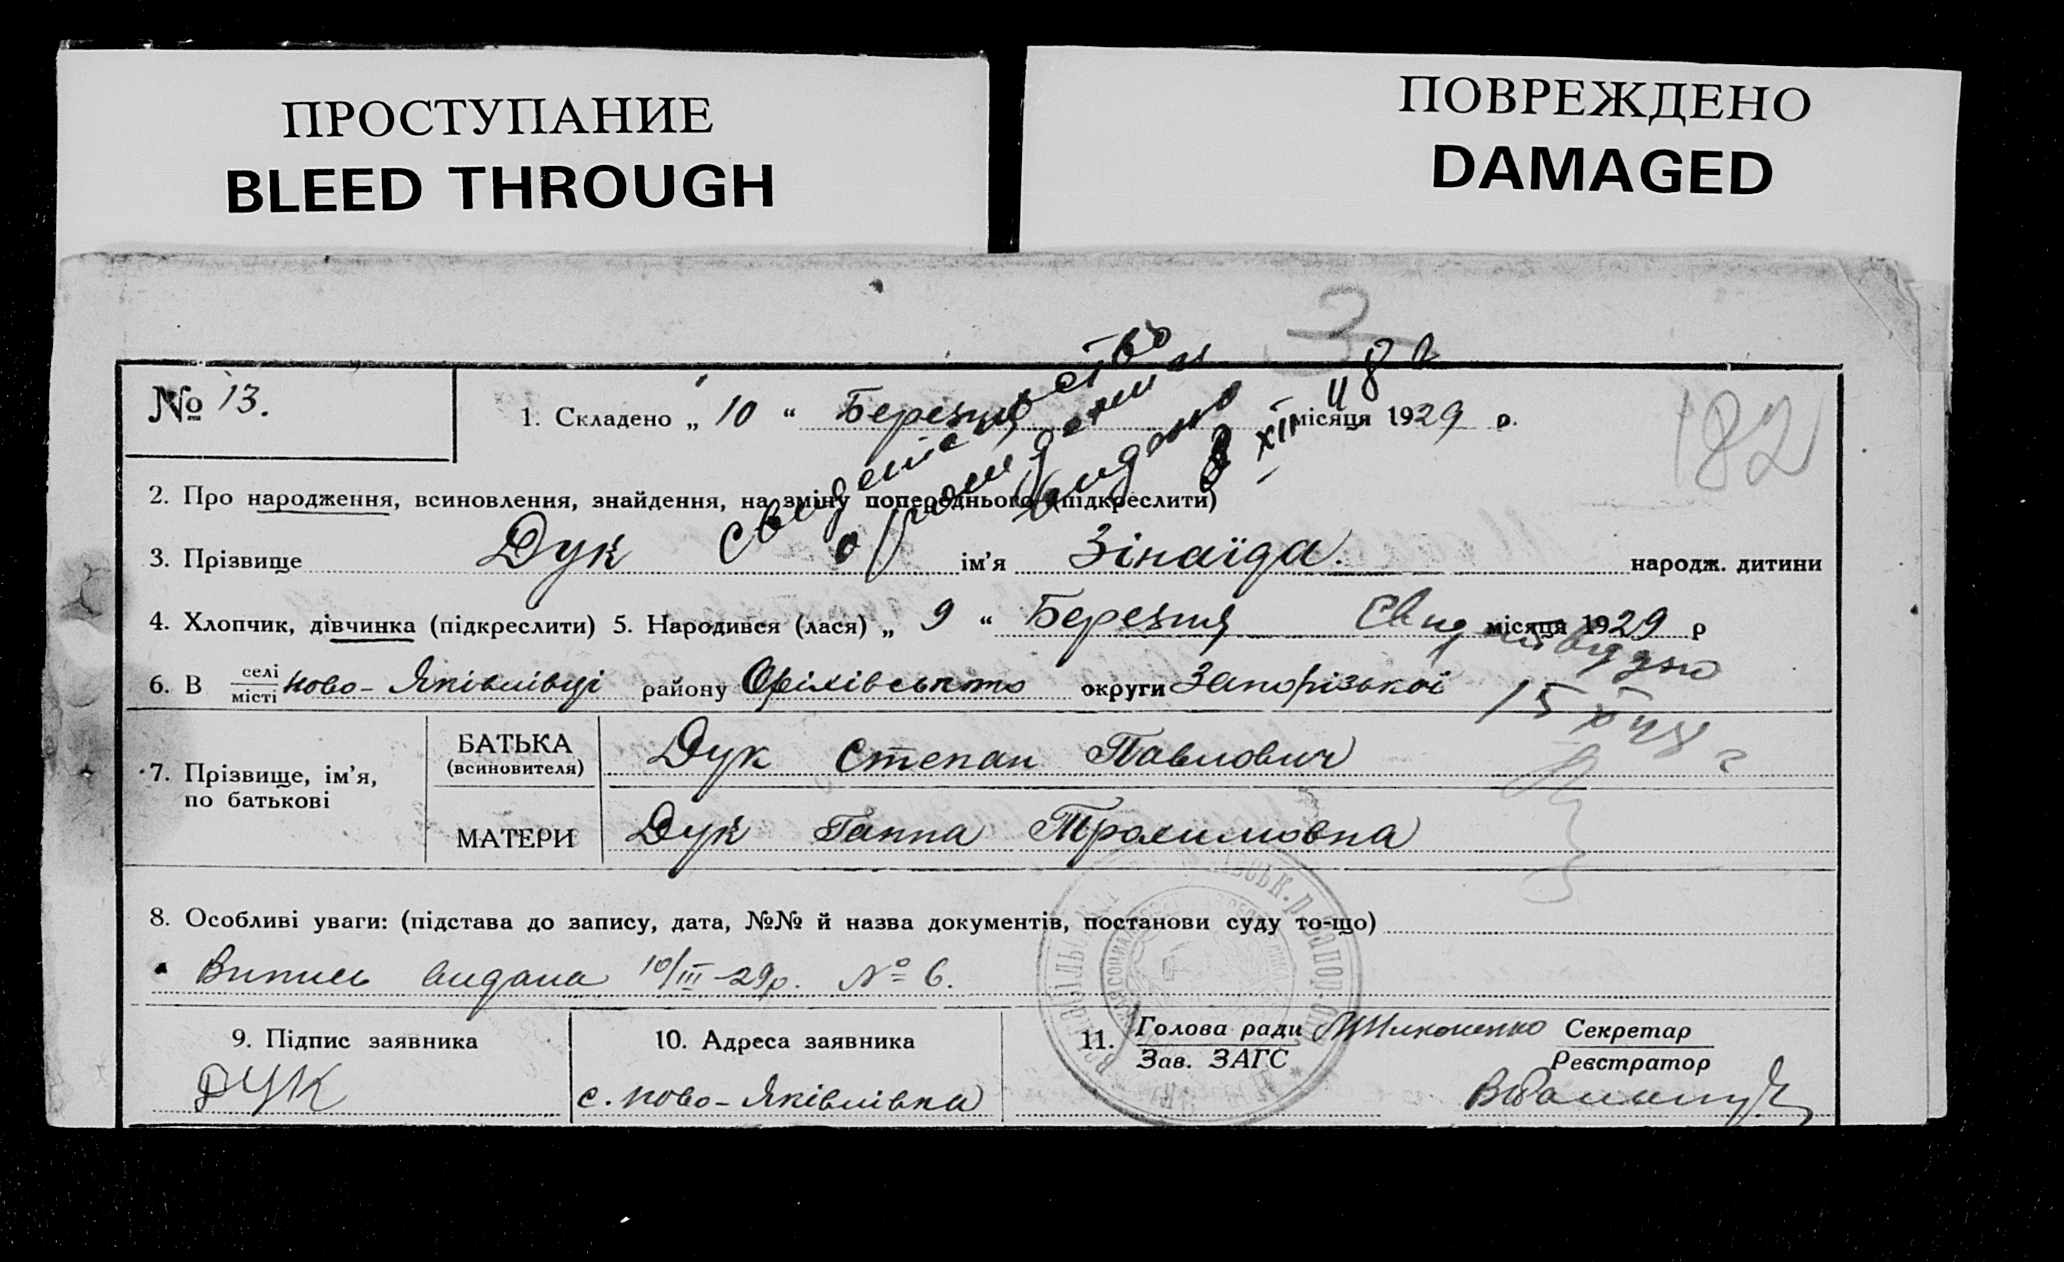 ПРОСТУПАНИЕ
BLEED THROUGH
ПОВРЕЖДЕНО
DAMAGED
3
182
№ 13.
1. Складено „ 10 “ Березня місяця 1929 р.
свидетельство
о рождении
выдано
8 XII 48 г
2. Про народження, всиновлення, знайдення, на зміну попереднього (підкреслити)
3. Прізвище Дук ім’я Зінаїда. народж. дитини
4. Хлопчик, дівчинка (підкреслити) 5. Народився (лася) „ 9 “ Березня місяця 1929 р
6. В селі/місті Ново-Яківлівці району Оріхівського округи Запорізької
15
7. Прізвище, ім’я, по батькові
БАТЬКА (всиновителя) Дук Степан Павлович
МАТЕРИ Дук Ганна Трохимовна
8. Особливі уваги: (підстава до запису, дата, №№ й назва документів, постанови суду то-що)
Випись видана 10/III-29р. № 6.
9. Підпис заявника
ДУК
10. Адреса заявника
с. Ново-Яківлівка
11. Голова ради
Зав. ЗАГС
Секретар
Реєстратор